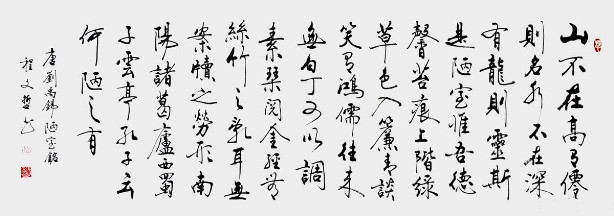 山不在高有僊
則名水不在深
有龍則靈斯
是陋室惟吾德
馨苔痕上階綠
草色入簾青談
笑有鴻儒往來
無白丁可以調
素琴閱金經無
絲竹之亂耳無
案牘之勞形南
陽諸葛廬西蜀
子雲亭孔子云
何陋之有
唐劉禹錫陋室銘
程文哲